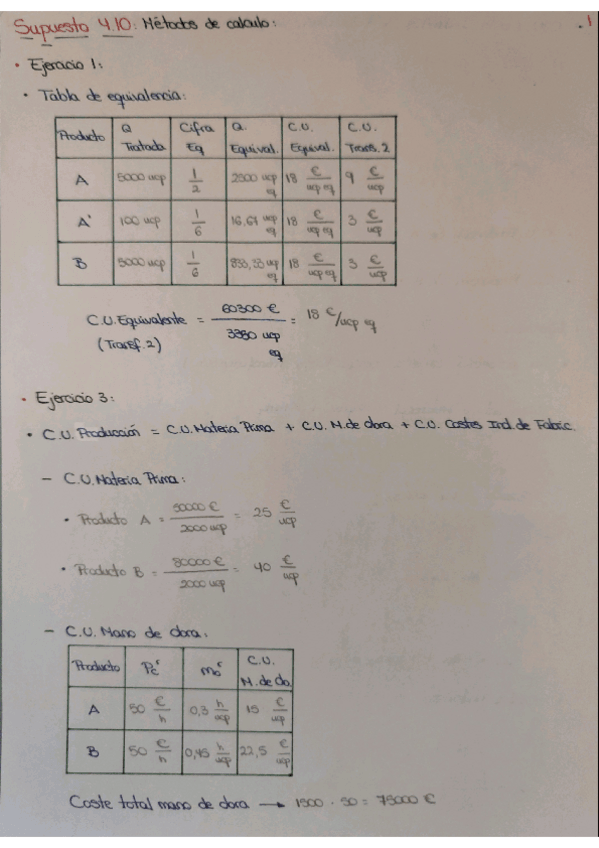 Supuesto 4.10: Métodos de calculo:
1
• Ejercicio 1:
• Tabla de equivalencia:
Producto | Q Tratada | Cifra Eq | Q. Equival. | C.U. Equival. | C.U. Transf. 2
A | 5000 ucp | 1/2 | 2500 ucp eq | 18 €/ucp eq | 9 €/ucp
A' | 100 ucp | 1/6 | 16,67 ucp eq | 18 €/ucp eq | 3 €/ucp
B | 5000 ucp | 1/6 | 833,33 ucp eq | 18 €/ucp eq | 3 €/ucp
C.U. Equivalente (Transf. 2) = 60300 € / 3350 ucp eq = 18 €/ucp eq
• Ejercicio 3:
• C.U. Producción = C.U. Materia Prima + C.U. M. de obra + C.U. Costes Ind. de Fabric.
– C.U. Materia Prima:
• Producto A = 50000 € / 2000 ucp = 25 €/ucp
• Producto B = 80000 € / 2000 ucp = 40 €/ucp
– C.U. Mano de obra:
Producto | Pc^r | mo^r | C.U. M. de Ob.
A | 50 €/h | 0,3 h/ucp | 15 €/ucp
B | 50 €/h | 0,45 h/ucp | 22,5 €/ucp
Coste total mano de obra → 1500 · 50 = 75000 €